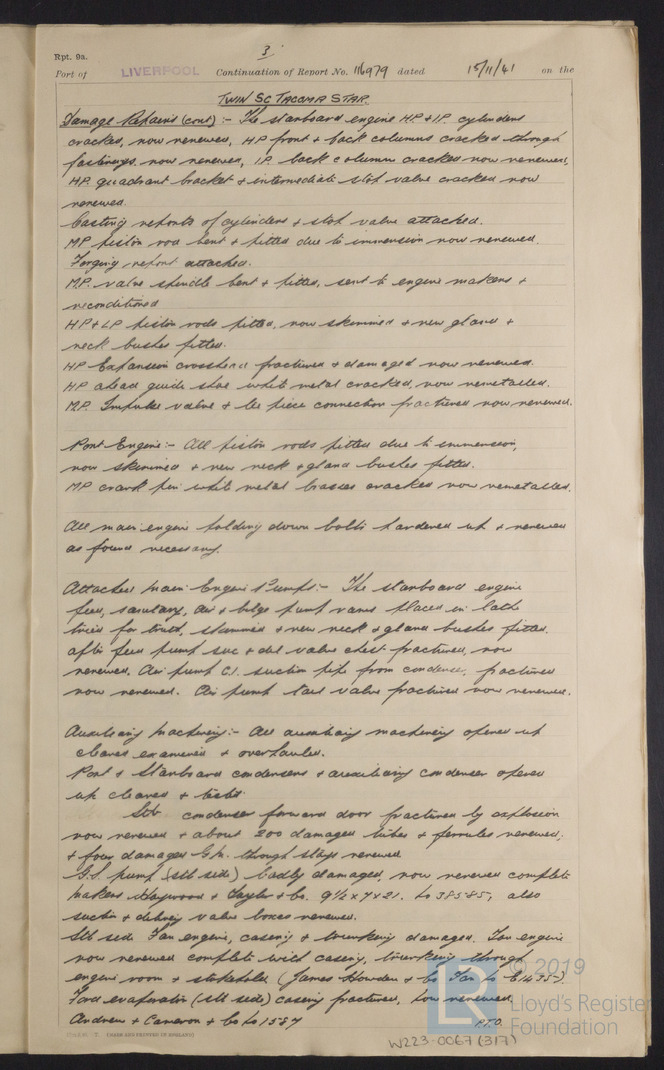 3
Rpt. 9a.
Port of LIVERPOOL Continuation of Report No. 116979 dated 15/11/41 on the
TWIN SC TACOMA STAR.
Damage Repairs (cont) :- The starboard engine HP & IP cylinders
cracked, now renewed, HP front & back columns cracked through
fastenings now renewed, IP back column cracked now renewed,
HP quadrant bracket & intermediate stop valve cracked now
renewed.
Casting reports of cylinders & stop valve attached.
MP piston rod bent & pitted due to immersion now renewed.
Forging report attached.
M.P. valve spindle bent & pitted, sent to engine makers &
reconditioned
HP & LP piston rods pitted, now skimmed & new gland &
neck bushes fitted.
HP Expansion crosshead fractured & damaged now renewed.
HP ahead guide shoe white metal cracked, now remetalled.
M.P. Impulse valve & tee piece connection fractured now renewed.
Port Engine :- All piston rods pitted due to immersion,
now skimmed & new neck & gland bushes fitted.
MP crank pin white metal brasses cracked now remetalled.
All main engine holding down bolts hardened up & renewed
as found necessary.
Attached Main Engine Pumps :- The starboard engine
feed, sanitary, air & bilge pump rams placed in lathe
tried for truth, skimmed & new neck & gland bushes fitted.
after feed pump suc & del valve chest fractured, now
renewed. Air pump C.I. suction pipe from condenser, fractured
now renewed. Air pump tail valve fractured now renewed.
Auxiliary Machinery :- All auxiliary machinery opened up
cleaned examined & overhauled.
Port & Starboard condensers & auxiliary condenser opened
up cleaned & tested.
Stb condenser forward door fractured by explosion
now renewed & about 200 damaged tubes & ferrules renewed,
& four damaged G.M. through stays renewed
G.S. pump (stb side) badly damaged, now renewed complete
makers Haywood & Taylor & Co. 9½ x 7 x 21. No 38585, also
suction & delivery valve boxes renewed.
Stb side Fan engine, casing & trunking damaged. Fan engine
now renewed complete with casing, trunking through
engine room & stokehold (James Howden & Co Fan No E14357)
Ford evaporator (stb side) casing fractured, now renewed
Andrew & Cameron & Co No 1587
P.T.O.
© 2019
Lloyd's Register
Foundation
LR
W223-0067 (317)